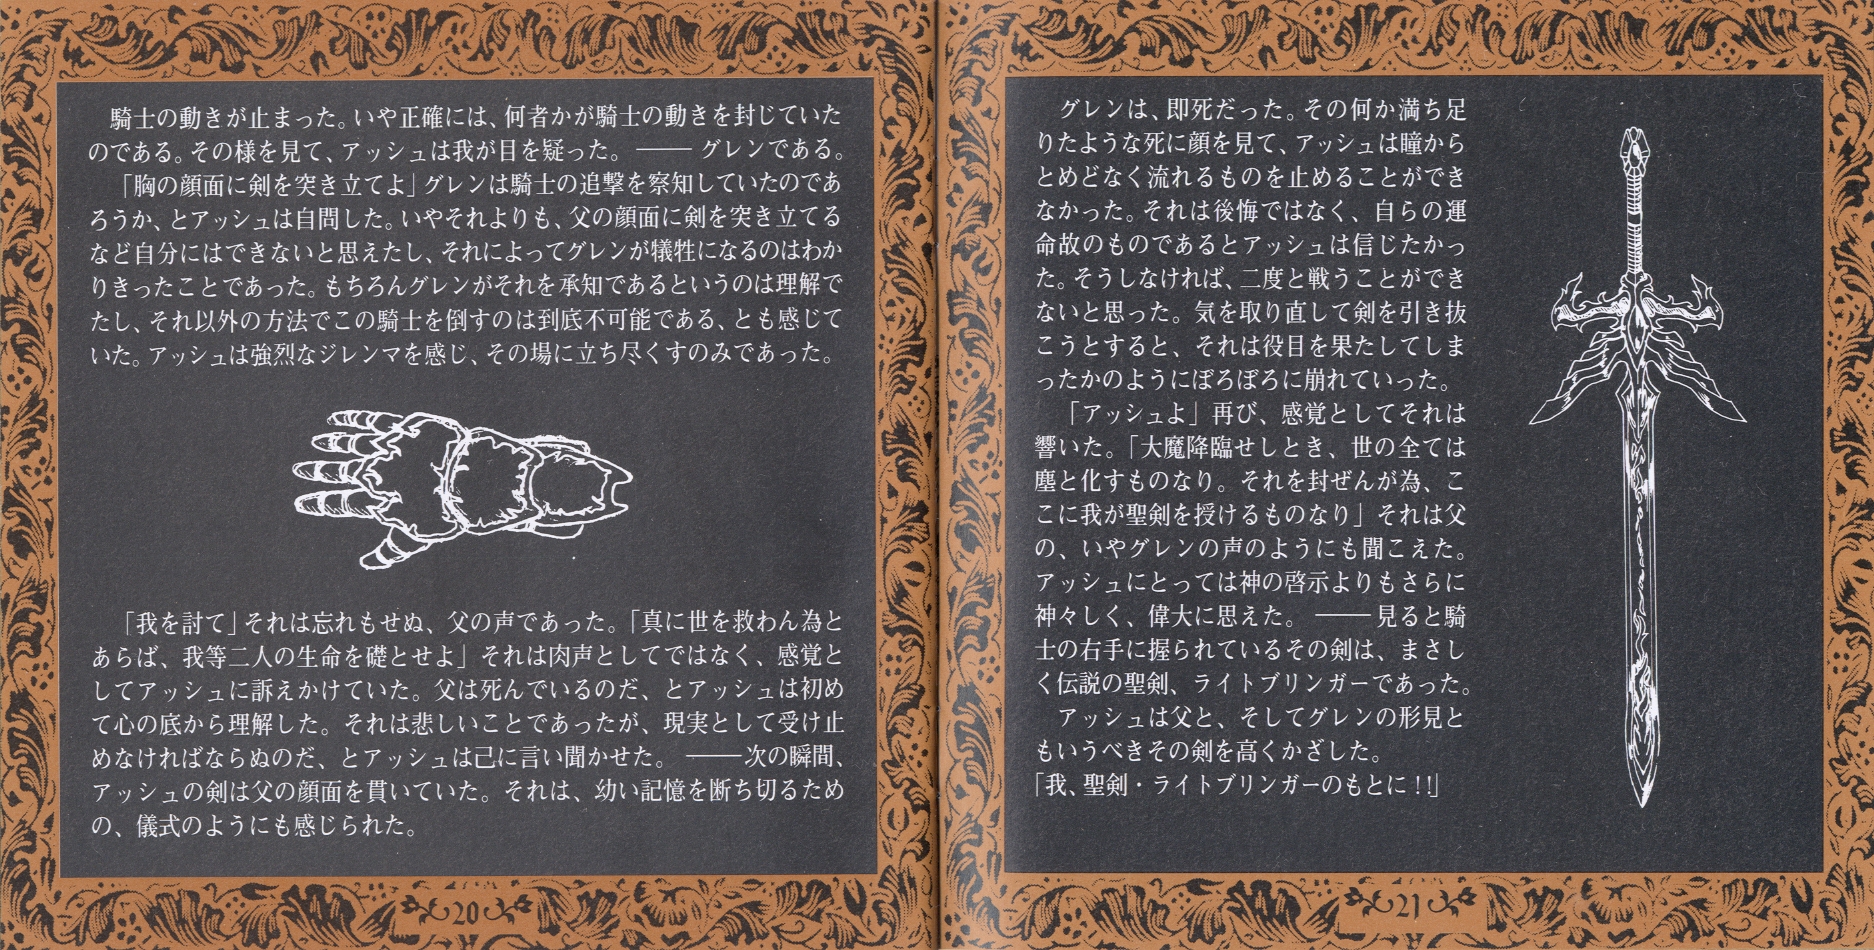 騎士の動きが止まった。いや正確には、何者かが騎士の動きを封じていた
のである。その様を見て、アッシュは我が目を疑った。――グレンである。
「胸の顔面に剣を突き立てよ」グレンは騎士の追撃を察知していたのであ
ろうか、とアッシュは自問した。いやそれよりも、父の顔面に剣を突き立てる
など自分にはできないと思えたし、それによってグレンが犠牲になるのはわか
りきったことであった。もちろんグレンがそれを承知であるというのは理解で
たし、それ以外の方法でこの騎士を倒すのは到底不可能である、とも感じて
いた。アッシュは強烈なジレンマを感じ、その場に立ち尽くすのみであった。
「我を討て」それは忘れもせぬ、父の声であった。「真に世を救わん為と
あらば、我等二人の生命を礎とせよ」それは肉声としてではなく、感覚と
してアッシュに訴えかけていた。父は死んでいるのだ、とアッシュは初め
て心の底から理解した。それは悲しいことであったが、現実として受け止
めなければならぬのだ、とアッシュは己に言い聞かせた。――次の瞬間、
アッシュの剣は父の顔面を貫いていた。それは、幼い記憶を断ち切るため
の、儀式のようにも感じられた。
20
グレンは、即死だった。その何か満ち足
りたような死に顔を見て、アッシュは瞳から
とめどなく流れるものを止めることができ
なかった。それは後悔ではなく、自らの運
命故のものであるとアッシュは信じたかっ
た。そうしなければ、二度と戦うことができ
ないと思った。気を取り直して剣を引き抜
こうとすると、それは役目を果たしてしま
ったかのようにぼろぼろに崩れていった。
「アッシュよ」再び、感覚としてそれは
響いた。「大魔降臨せしとき、世の全ては
塵と化すものなり。それを封ぜんが為、こ
こに我が聖剣を授けるものなり」それは父
の、いやグレンの声のようにも聞こえた。
アッシュにとっては神の啓示よりもさらに
神々しく、偉大に思えた。――見ると騎
士の右手に握られているその剣は、まさし
く伝説の聖剣、ライトブリンガーであった。
アッシュは父と、そしてグレンの形見と
もいうべきその剣を高くかざした。
「我、聖剣・ライトブリンガーのもとに!!」
21